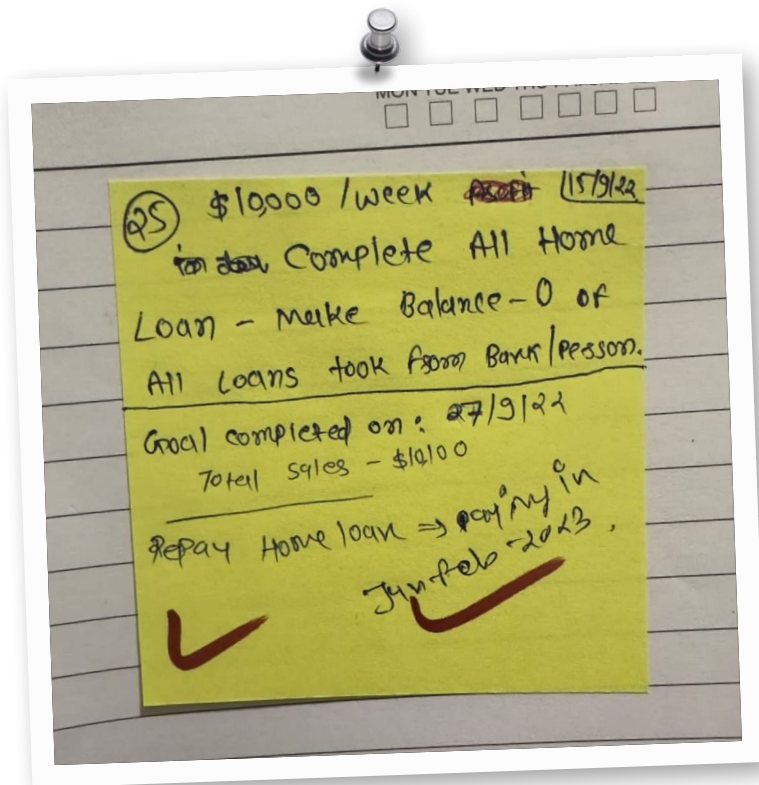 25 $10,000 / week 15/9/22
Complete All Home
Loan - Make Balance - 0 of
All Loans took from Bank / Person.
Goal completed on : 27/9/22
Total Sales - $10,100
Repay Home loan ⇒ paying in
Jan-Feb - 2023.